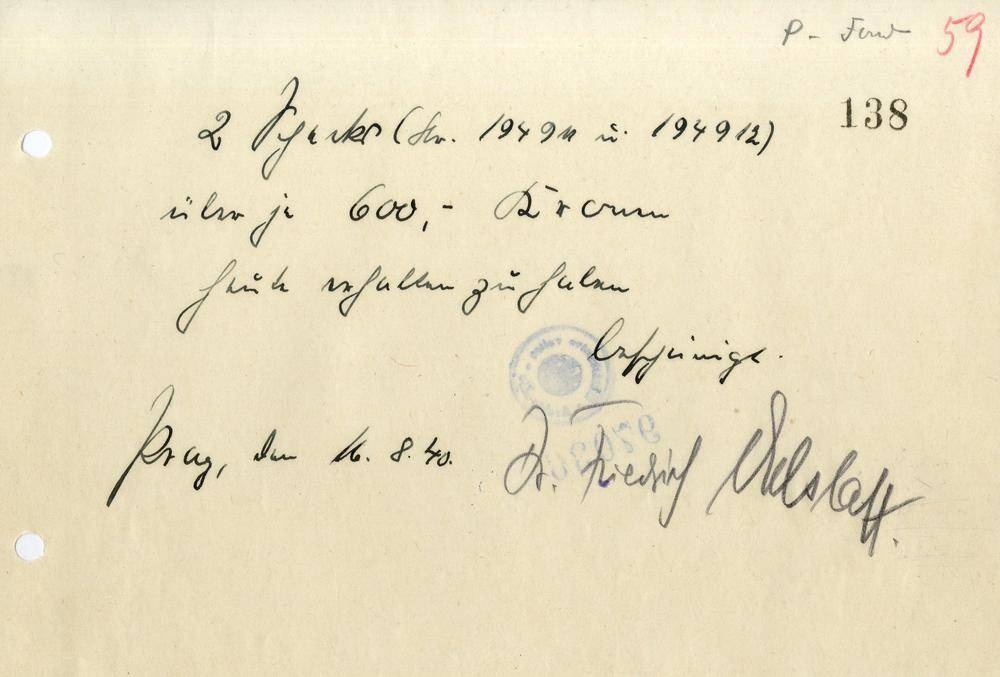 P - Fond 59
138
2 Schecks (Nr. 194911 u. 194912)
über je 600,- Kronen
heute erhalten zu haben
bescheinigt.
Prag, den 16. 8. 40.
Dr. Friedrich